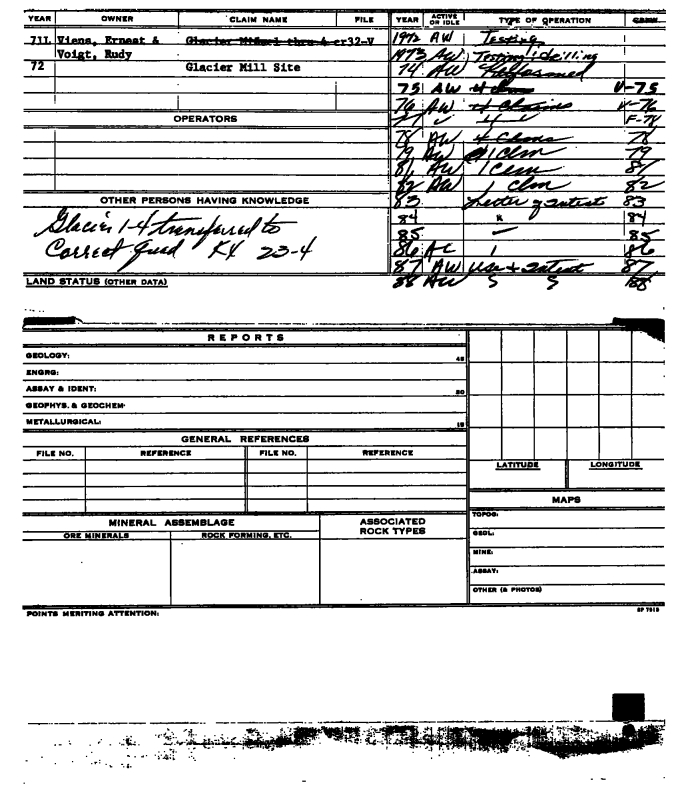 YEAR OWNER CLAIM NAME FILE
71L Viens, Ernest & Glacier thru 4 cr32-V
Voigt, Rudy
72 Glacier Mill Site
OPERATORS
OTHER PERSONS HAVING KNOWLEDGE
Glacier 1-4 transferred to
Correct quad KX 23-4
LAND STATUS (OTHER DATA)
YEAR ACTIVE OR IDLE TYPE OF OPERATION
1972 AW Testing
1973 AW Testing drilling
74 AW Performed
75 AW 4 clms V-75
76 AW 4 Claims V-76
77 ✓ 4 F-78
78 AW 4 Clms 78
79 AW 1 Clm 79
81 AW 1 Clm 81
82 AW 1 clm 82
83 Letter of intent 83
84 " 84
85 85
86 AC 1 86
87 AW Use & Intent 87
88 AW S S 88
REPORTS
GEOLOGY: 45
ENGRG:
ASSAY & IDENT: 50
GEOPHYS. & GEOCHEM·
METALLURGICAL: 15
GENERAL REFERENCES
FILE NO. REFERENCE FILE NO. REFERENCE
LATITUDE LONGITUDE
MAPS
TOPOG:
GEOL:
MINE:
ASSAY:
OTHER (& PHOTOS)
MINERAL ASSEMBLAGE ASSOCIATED ROCK TYPES
ORE MINERALS ROCK FORMING, ETC.
POINTS MERITING ATTENTION: SP 7913